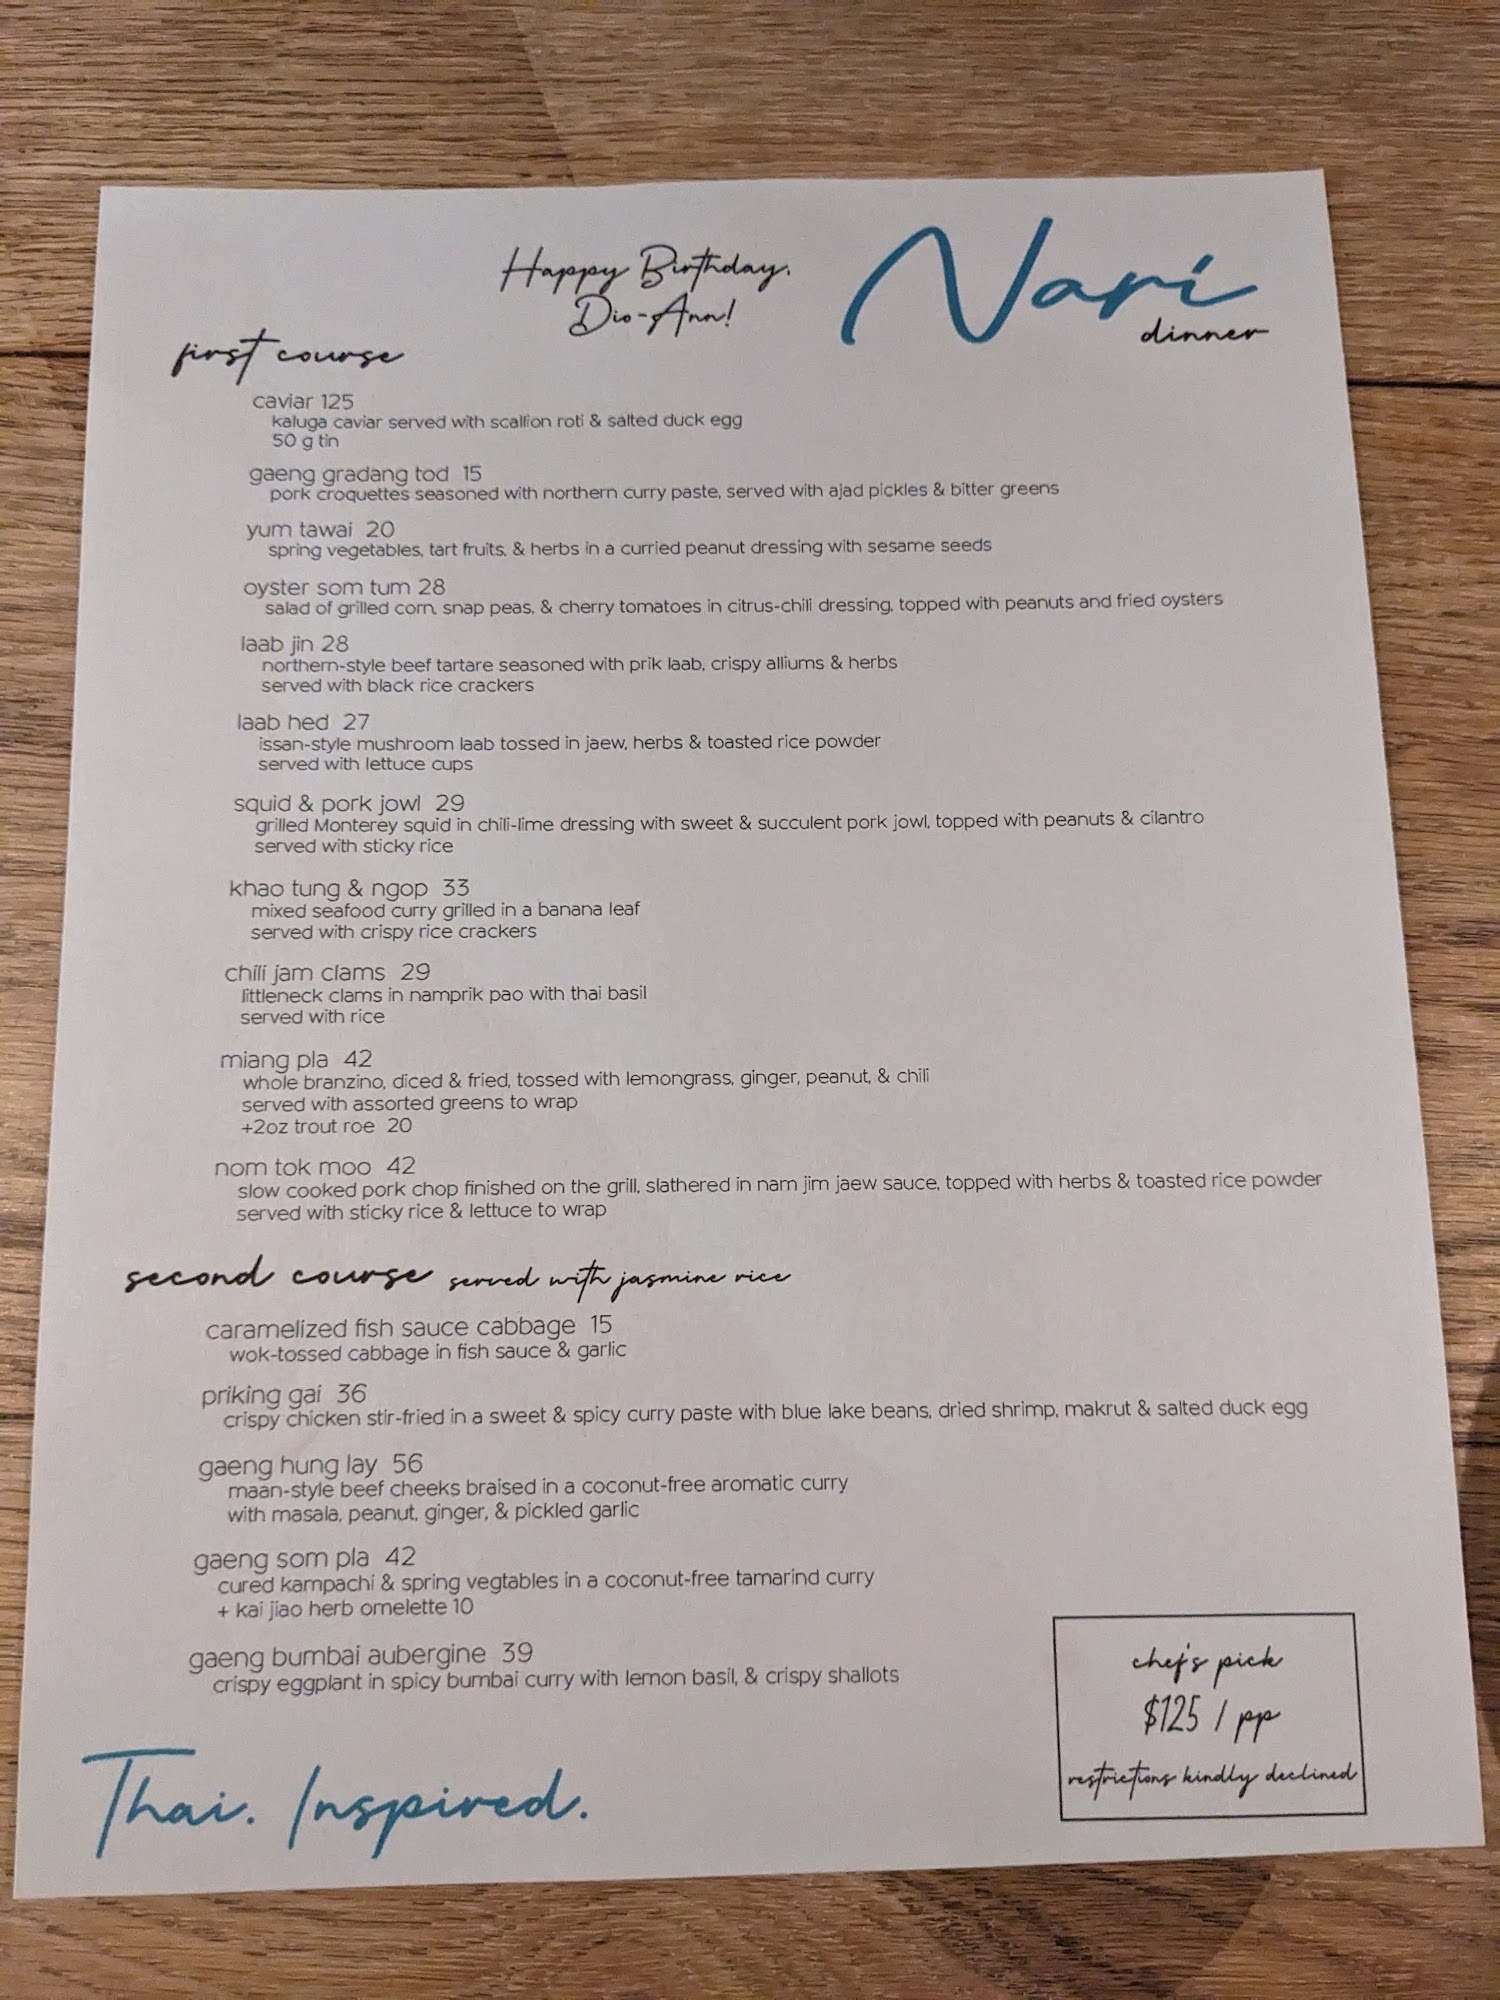 Happy Birthday,
Dio-Ann!
Nari
dinner
first course
caviar 125
kaluga caviar served with scallion roti & salted duck egg
50 g tin
gaeng gradang tod 15
pork croquettes seasoned with northern curry paste, served with ajad pickles & bitter greens
yum tawai 20
spring vegetables, tart fruits, & herbs in a curried peanut dressing with sesame seeds
oyster som tum 28
salad of grilled corn, snap peas, & cherry tomatoes in citrus-chili dressing, topped with peanuts and fried oysters
laab jin 28
northern-style beef tartare seasoned with prik laab, crispy alliums & herbs
served with black rice crackers
laab hed 27
issan-style mushroom laab tossed in jaew, herbs & toasted rice powder
served with lettuce cups
squid & pork jowl 29
grilled Monterey squid in chili-lime dressing with sweet & succulent pork jowl, topped with peanuts & cilantro
served with sticky rice
khao tung & ngop 33
mixed seafood curry grilled in a banana leaf
served with crispy rice crackers
chili jam clams 29
littleneck clams in namprik pao with thai basil
served with rice
miang pla 42
whole branzino, diced & fried, tossed with lemongrass, ginger, peanut, & chili
served with assorted greens to wrap
+2oz trout roe 20
nom tok moo 42
slow cooked pork chop finished on the grill, slathered in nam jim jaew sauce, topped with herbs & toasted rice powder
served with sticky rice & lettuce to wrap
second course served with jasmine rice
caramelized fish sauce cabbage 15
wok-tossed cabbage in fish sauce & garlic
priking gai 36
crispy chicken stir-fried in a sweet & spicy curry paste with blue lake beans, dried shrimp, makrut & salted duck egg
gaeng hung lay 56
maan-style beef cheeks braised in a coconut-free aromatic curry
with masala, peanut, ginger, & pickled garlic
gaeng som pla 42
cured kampachi & spring vegtables in a coconut-free tamarind curry
+ kai jiao herb omelette 10
gaeng bumbai aubergine 39
crispy eggplant in spicy bumbai curry with lemon basil, & crispy shallots
chef's pick
$125 / pp
restrictions kindly declined
Thai. Inspired.